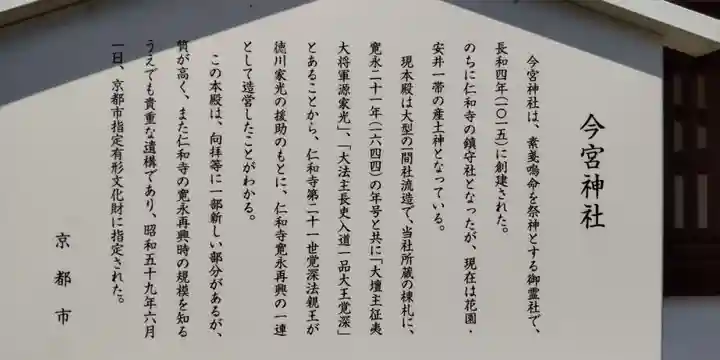 今宮神社
今宮神社は、素戔嗚命を祭神とする御霊社で、
長和四年(一〇一五)に創建された。
のちに仁和寺の鎮守社となったが、現在は花園・
安井一帯の産土神となっている。
現本殿は大型の一間社流造で、当社所蔵の棟札に、
寛永二十一年(一六四四)の年号と共に「大壇主征夷
大将軍源家光」、「大法主長吏入道一品大王覚深」
とあることから、仁和寺第二十一世覚深法親王が
徳川家光の援助のもとに、仁和寺寛永再興の一連
として造営したことがわかる。
この本殿は、向拝等に一部新しい部分があるが、
質が高く、また仁和寺の寛永再興時の規模を知る
うえでも貴重な遺構であり、昭和五十九年六月
一日、京都市指定有形文化財に指定された。
京都市